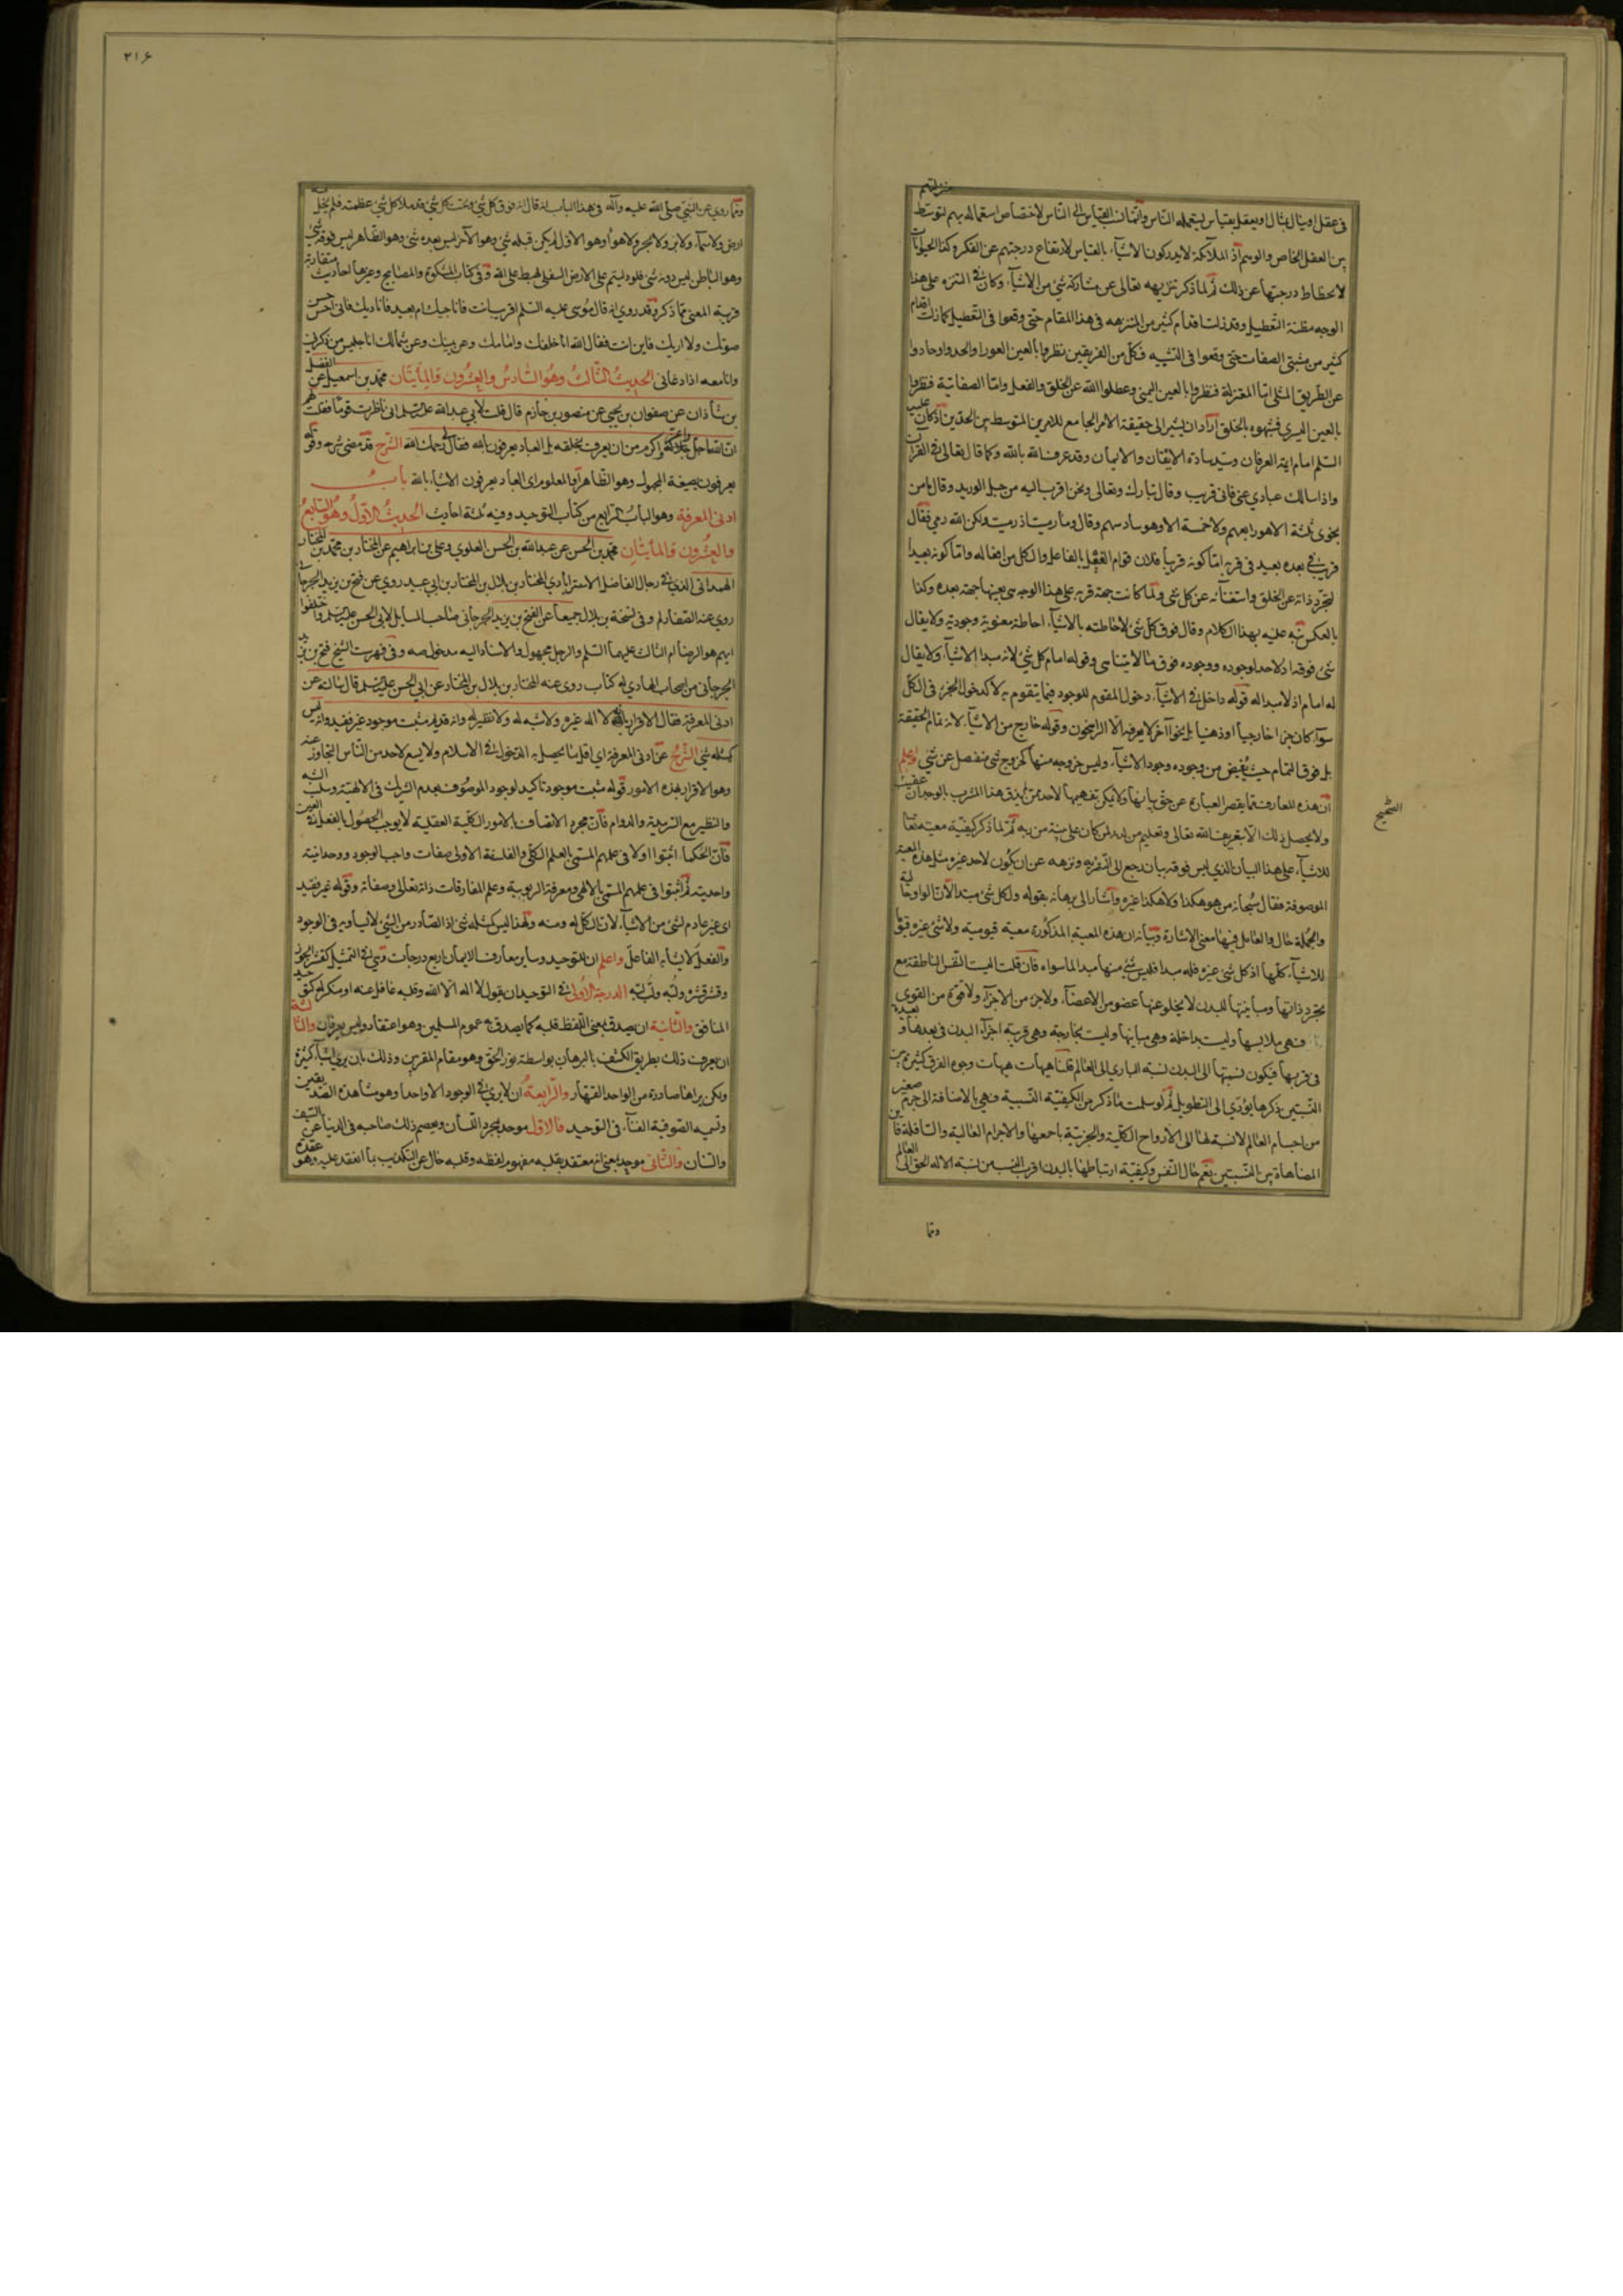 في عقل او ينال بمثال ويعقل بقياس يستعمله الناس وانما نسب القياس الى الناس لاختصاص استعماله بهم لتوسط منزلتهم
بين العقل الخاص والوهم اذ الملائكة لا يدركون الاشياء بالقياس لارتفاع درجتهم عن الفكر وكذا الحيوانات
لانحطاط درجتها عن ذلك ثم لما ذكر تنزيهه تعالى عن مشاركة شئ من الاشياء وكان في التنزه على هذا
الوجه مظنة التعطيل وقد زلت اقدام كثير من المنزهه في هذا المقام حتى وقعوا في التعطيل كما زلت اقدام
كثير من مثبتي الصفات حتى وقعوا في التشبيه فكل من الفريقين نظروا بالعين العوراء والحدوا وحادوا
عن الطريق المثلى اما المعتزلة فنظروا بالعين اليمنى وعطلوا الله عن الخلق والفعل واما الصفاتية فنظروا
بالعين اليسرى فشبهوه بالخلق اراد ان يشير الى حقيقة الامر الجامع للامرين المتوسط بين الحدين اذ كان عليه
السلم امام ايمة العرفان وسيد سادة الايقان والايمان وقد عرف الله بالله وكما قال تعالى في القرآن
واذا سالك عبادي عني فاني قريب وقال تبارك وتعالى ونحن اقرب اليه من حبل الوريد وقال ما من
نجوى ثلثة الا هو رابعهم ولا خمسة الا هو سادسهم وقال وما رميت اذ رميت ولكن الله رمى فقال
قريب في بعده بعيد في قربه اما كونه قريبا فلان قوام الفعل بالفاعل والكل من افعاله واما كونه بعيدا
لتجرد ذاته عن الخلق واستغنائه عن كل شئ ولما كانت جهة قربه على هذا الوجه هي بعينها جهة بعده وكذا
بالعكس نبه عليه بهذا الكلام وقال فوق كل شئ لاحاطته بالاشياء احاطة معنوية وجودية ولا يقال
شئ فوقه اذ لا حد لوجوده ووجوده فوق ما لا يتناهى وقوله امام كل شئ لانه مبدا الاشياء ولا يقال
له امام اذ لا مبدا له قوله داخل في الاشياء دخول المقوم للوجود فيما يتقوم به لا كدخول الجزء في الكل
سواء كان جزءا خارجيا او ذهنيا بل نحوا آخر لا يعرفه الا الراسخون وقوله خارج من الاشياء لانه تمام الحقيقة
بل فوق التمام حيث يفيض من وجوده وجود الاشياء وليس خروجه منها كخروج شئ منفصل عن شئ واعلم
ان هذه المعارف مما يقصر العبارة عن حق بيانها ولا يمكن تفهيمها لاحد ممن لم يذق هذا المشرب بالوجدان
ولا يحصل ذلك الا بتعريف الله تعالى وتعليم من لدنه لمن كان على بينة من ربه ثم لما ذكر كيفية معيته تعالى
للاشياء على هذا البيان الذي ليس فوقه بيان رجع الى التنزيه ونزهه عن ان يكون لاحد غيره مثل هذه المعية
الموصوفة فقال سبحانه من هو هكذا ولا هكذا غيره واشار الى برهانه بقوله ولكل شئ مبتدا لان الواو حالية
والجملة حال والعامل فيها معنى الاشارة وبيانه ان هذه المعية المذكورة معية قيومية ولا شئ غيره قيوما
للاشياء كلها اذ كل شئ غيره فله مبدا فليس شئ منها مبدا لما سواه فان قلت اليست النفس الناطقة مع
تجرد ذاتها ومباينتها للبدن لا يخلو عنها عضو من الاعضاء ولا جزء من الاجزاء ولا قوة من القوى
فهي ملابسها وليست بداخلة وهي مباينها وليست بخارجة وهي قريبة اجزاء البدن في بعدها وبعيدة
في قربها فيكون نسبتها الى البدن نسبة الباري الى العالم قلنا هيهات هيهات وجوه الفرق كثيرة بين
النسبتين ذكرها يؤدي الى التطويل ثم لو سلمت ما ذكر من الكيفية النسبية فهي بالاضافة الى جرم صغير
من اجسام العالم لا نسبة لها الى الارواح الكلية والجزئية باجمعها والاجرام العالية والسافلة فاين
المضاهاة بين النسبتين نعم حال النفس وكيفية ارتباطها بالبدن اقرب النسب من نسبة الاله الحق الى العالم
الصحيح
ومما
٢١٦
ومما روي عن النبي صلى الله عليه وآله في هذا الباب انه قال انه فوق كل شئ وتحت كل شئ قد ملأ كل شئ عظمته فلم يخل منه
ارض ولا سماء ولا بر ولا بحر ولا هواء وهو الاول لم يكن قبله شئ وهو الآخر ليس بعده شئ وهو الظاهر ليس فوقه شئ
وهو الباطن ليس دونه شئ فلو دليتم على الارض السفلى لهبط على الله وفي كتاب المشكوة والمصابيح وغيرها احاديث متقاربة
قريبة المعنى مما ذكر وقد روي انه قال موسى عليه السلم اقريب انت فاناجيك ام بعيد فاناديك فاني احس حسن
صوتك ولا اريك فاين انت فقال الله انا خلفك وامامك وعن يمينك وعن شمالك انا جليس من ذكرني
وانا معه اذا دعاني الحديث الثالث وهو السادس والعشرون والمأيتان محمد بن اسمعيل عن الفضل
بن شاذان عن صفوان بن يحيى عن منصور بن حازم قال قلت لابي عبد الله عليه السلم اني ناظرت قوما فقلت لهم
ان الله جل جلاله اجل واعز واكرم من ان يعرف بخلقه بل العباد يعرفون بالله فقال رحمك الله الشرح قد مضى شرحه وقوله
يعرفون بصيغة المجهول وهو الظاهر او المعلوم اى العباد يعرفون الاشياء بالله باب
ادنى المعرفة وهو الباب الرابع من كتاب التوحيد وفيه ثلثة احاديث الحديث الاول وهو السابع
والعشرون والمأيتان محمد بن الحسن عن عبد الله بن الحسن العلوي وعلي بن ابراهيم عن المختار بن محمد بن المختار
الهمداني الذي في رجال الفاضل الاسترابادي المختار بن بلال بن المختار بن ابي عبيد روي عن فتح بن يزيد الجرجاني
روي عنه الصفار لم وفي نسخة بن بلال جميعا عن الفتح بن يزيد الجرجاني صاحب المسايل لابي الحسن عليه السلم واختلفوا
ايهم هو الرضا ام الثالث عليهما السلم والرجل مجهول والاسناد اليه مدخول صه وفي فهرست الشيخ فتح بن يزيد
الجرجاني من اصحاب الهادي له كتاب روى عنه المختار بن بلال بن المختار عن ابي الحسن عليه السلم قال سالته عن
ادنى المعرفة فقال الاقرار بانه لا اله غيره ولا شبه له ولا نظير له وانه قديم مثبت موجود غير فقيد وانه ليس
كمثله شئ الشرح عن ادنى المعرفة اى اقل ما يحصل به الدخول في الاسلام ولا يسع لاحد من الناس التجاوز عنه
وهو الاقرار بهذه الامور قوله مثبت موجود تاكيد لوجود الموصوف بعدم الشريك في الالهية وسلب الشبه
والنظير مع السرمدية والدوام فان مجرد الاتصاف بالامور الكلية العقلية لا يوجب الحصول بالفعل
فان الحكماء اثبتوا اولا في علمهم المسمى بالعلم الكلي والفلسفة الاولى صفات واجب الوجود ووحدانيته
واحديته ثم اثبتوا في علمهم المسمى بالالهي ومعرفة الربوبية وعلم المفارقات ذاته تعالى وصفاته وقوله غير فقيد
اى غير عادم لشئ من الاشياء لان الكل له ومنه ولهذا ليس كمثله شئ اذ الصادر من الشئ لا يساويه في الوجود
والفعل لا يشابه الفاعل واعلم ان للتوحيد وساير معارف الايمان اربع درجات وهي في التمثيل كقشر الجوز
وقشر قشره ولبه ولب لبه الدرجة الاولى في التوحيد ان يقول لا اله الا الله وقلبه غافل عنه او منكر له كتوحيد
المنافق والثانية ان يصدق بمعنى اللفظ قلبه كما يصدق به عموم المسلمين وهو اعتقاد وليس بعرفان والثالثة
ان يعرف ذلك بطريق الكشف بالبرهان بواسطة نور الحق وهو مقام المقربين وذلك بان يرى اشياء كثيرة
ولكن يراها صادرة من الواحد القهار والرابعة ان لا يرى في الوجود الا واحدا وهو مشاهدة الصديقين
وتسميه الصوفية الفناء في التوحيد فالاول موحد بمجرد اللسان ويعصم ذلك صاحبه في الدنيا عن السيف
والسنان والثاني موحد بمعنى انه معتقد بقلبه مفهوم لفظه وقلبه خال عن التكذيب بما انعقد عليه وهو عقدة